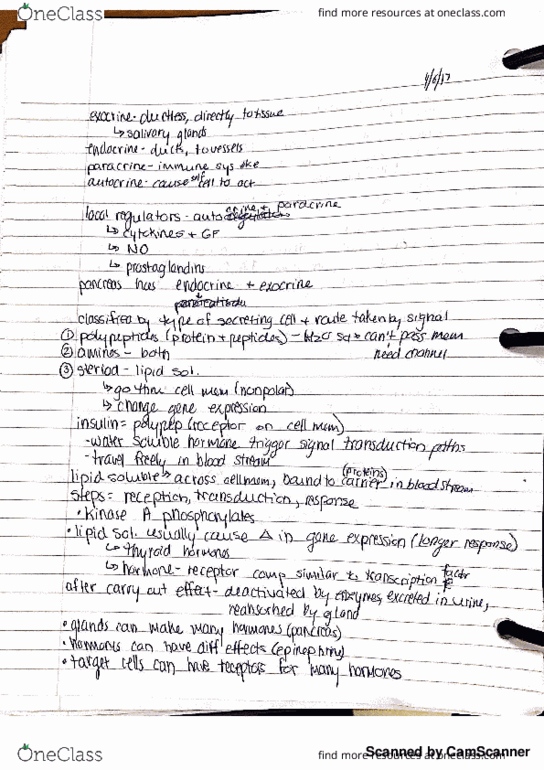 OneClass
find more resources at oneclass.com
4/6/17
exocrine- ductless, directly to tissue
↳ salivary glands
endocrine- ducts, to vessels
paracrine- immune sys like
autocrine- cause self cell to act
local regulators - autocrine + paracrine
↳ cytokines + GF
↳ NO
↳ prostaglandins
pancreas has endocrine + exocrine
classified by type of secreting cell + route taken by signal
① polypeptides (protein + peptides) - H2O sol + can't pass mem
② amines - both need channel
③ steriod - lipid sol.
↳ go thru cell mem (nonpolar)
↳ change gene expression
insulin = polypep (receptor on cell mem)
- water soluble hormone trigger signal transduction paths
- travel freely in blood stream
lipid soluble → across cell mem, bound to carrier (proteins) in blood stream
steps = reception, transduction, response
• kinase A phosphorylates
• lipid sol. usually cause Δ in gene expression (longer response)
↳ thyroid hormones
↳ hormone- receptor comp similar to transcription factor
after carry out effect- deactivated by enzymes, excreted in urine,
reabsorbed by gland
• glands can make many hormones (pancreas)
• hormones can have diff effects (epinephrine)
• target cells can have receptors for many hormones
OneClass
find more resources at oneclass.com
Scanned by CamScanner